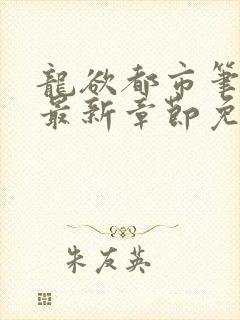 龍欲都市筆
最新章節免
朱友英